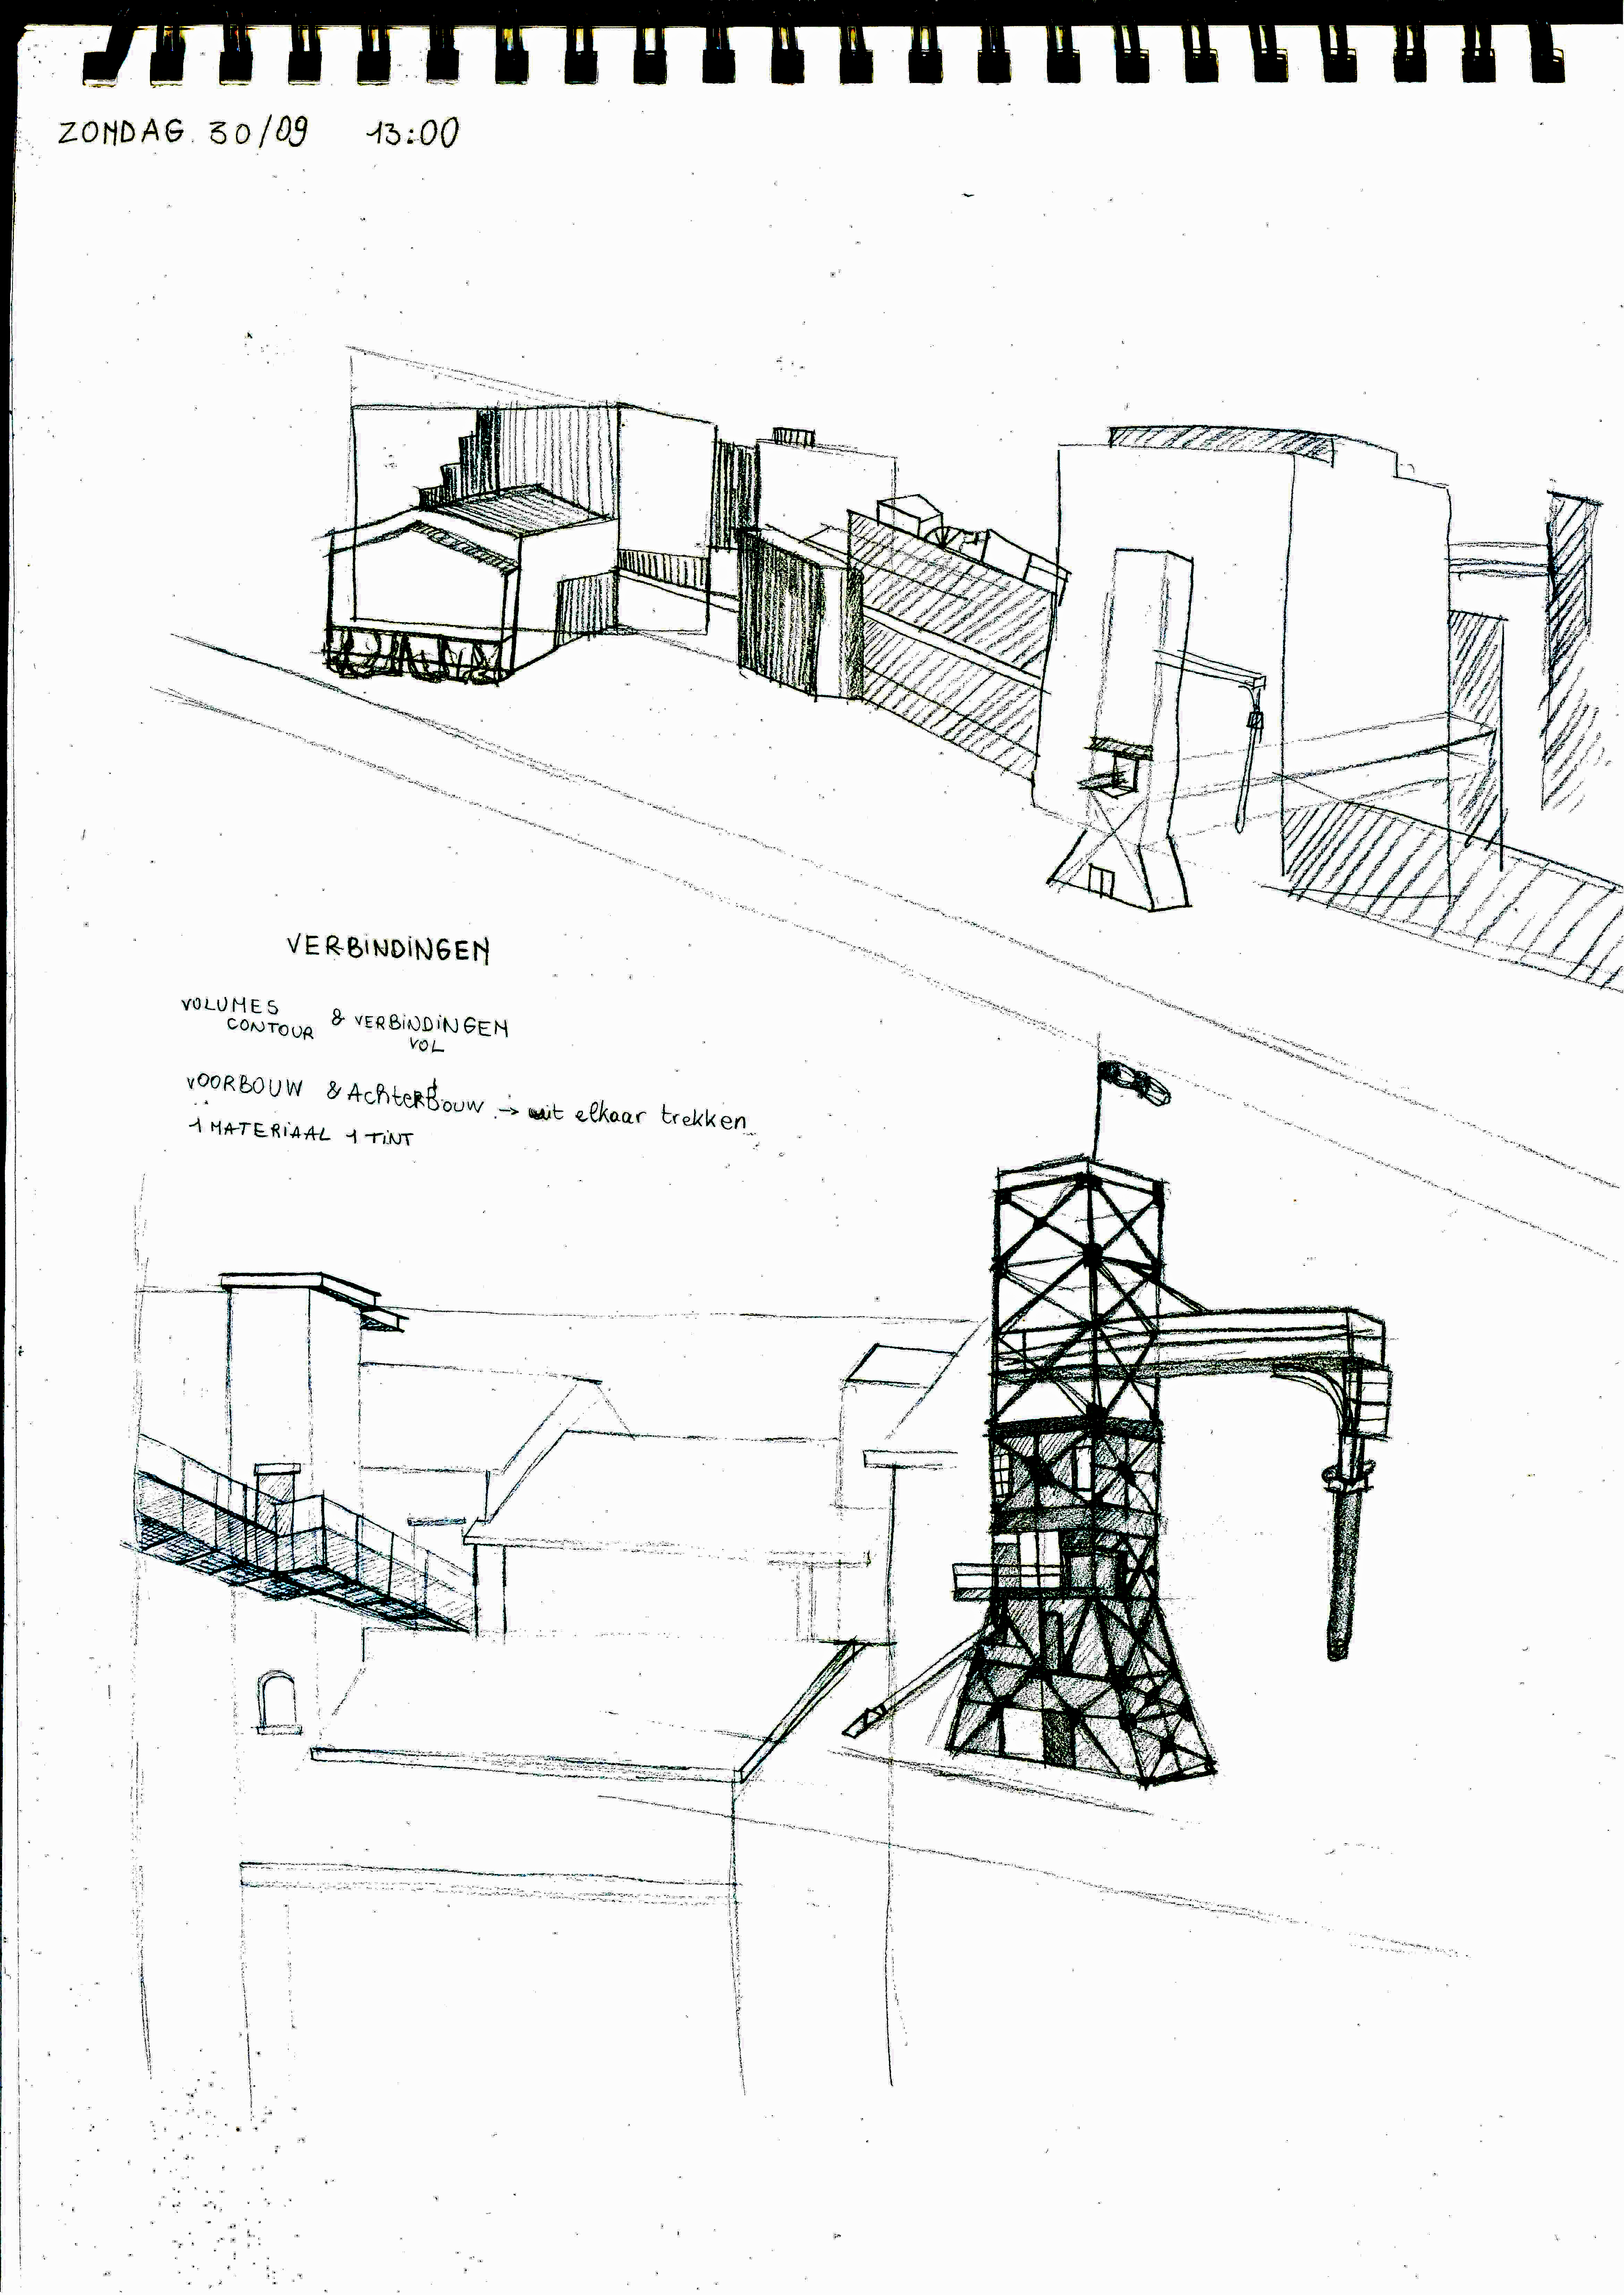 ZONDAG. 30/09 13:00
VERBINDINGEN
VOLUMES
CONTOUR & VERBINDINGEN
VOL
VOORBOUW & AchterBouw → uit elkaar trekken
1 MATERIAAL 1 TINT